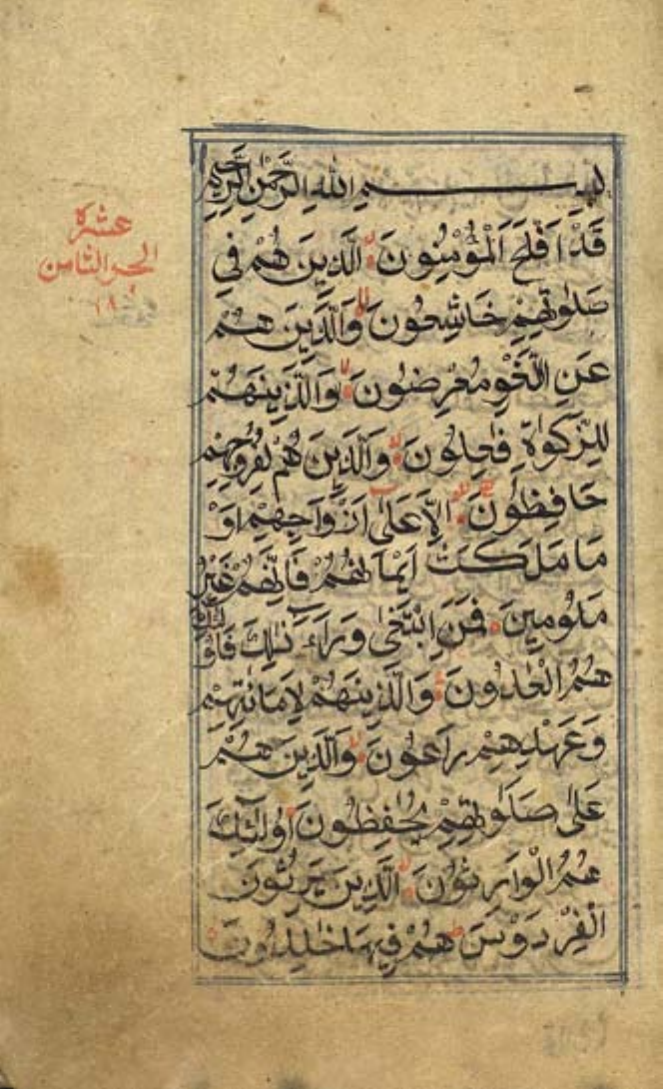 بسم الله الرحمن الرحيم
قَدْ اَفْلَحَ الْمُؤْمِنُونَ الَّذِينَ هُمْ فِي
صَلٰوتِهِمْ خَاشِعُونَ وَالَّذِينَ هُمْ
عَنِ اللَّغْوِ مُعْرِضُونَ وَالَّذِينَ هُمْ
لِلزَّكٰوةِ فٰعِلُونَ وَالَّذِينَ هُمْ لِفُرُوجِهِمْ
حَافِظُونَ اِلَّا عَلٰى اَزْوَاجِهِمْ اَوْ
مَا مَلَكَتْ اَيْمَانُهُمْ فَاِنَّهُمْ غَيْرُ
مَلُومِينَ فَمَنِ ابْتَغٰى وَرَاءَ ذٰلِكَ فَاُولٰئِكَ
هُمُ الْعٰدُونَ وَالَّذِينَ هُمْ لِاَمَانَاتِهِمْ
وَعَهْدِهِمْ رَاعُونَ وَالَّذِينَ هُمْ
عَلٰى صَلَوٰتِهِمْ يُحٰفِظُونَ اُولٰئِكَ
هُمُ الْوَارِثُونَ الَّذِينَ يَرِثُونَ
الْفِرْدَوْسَ هُمْ فِيهَا خٰلِدُونَ
عشرة
الجزء الثامن
١٨